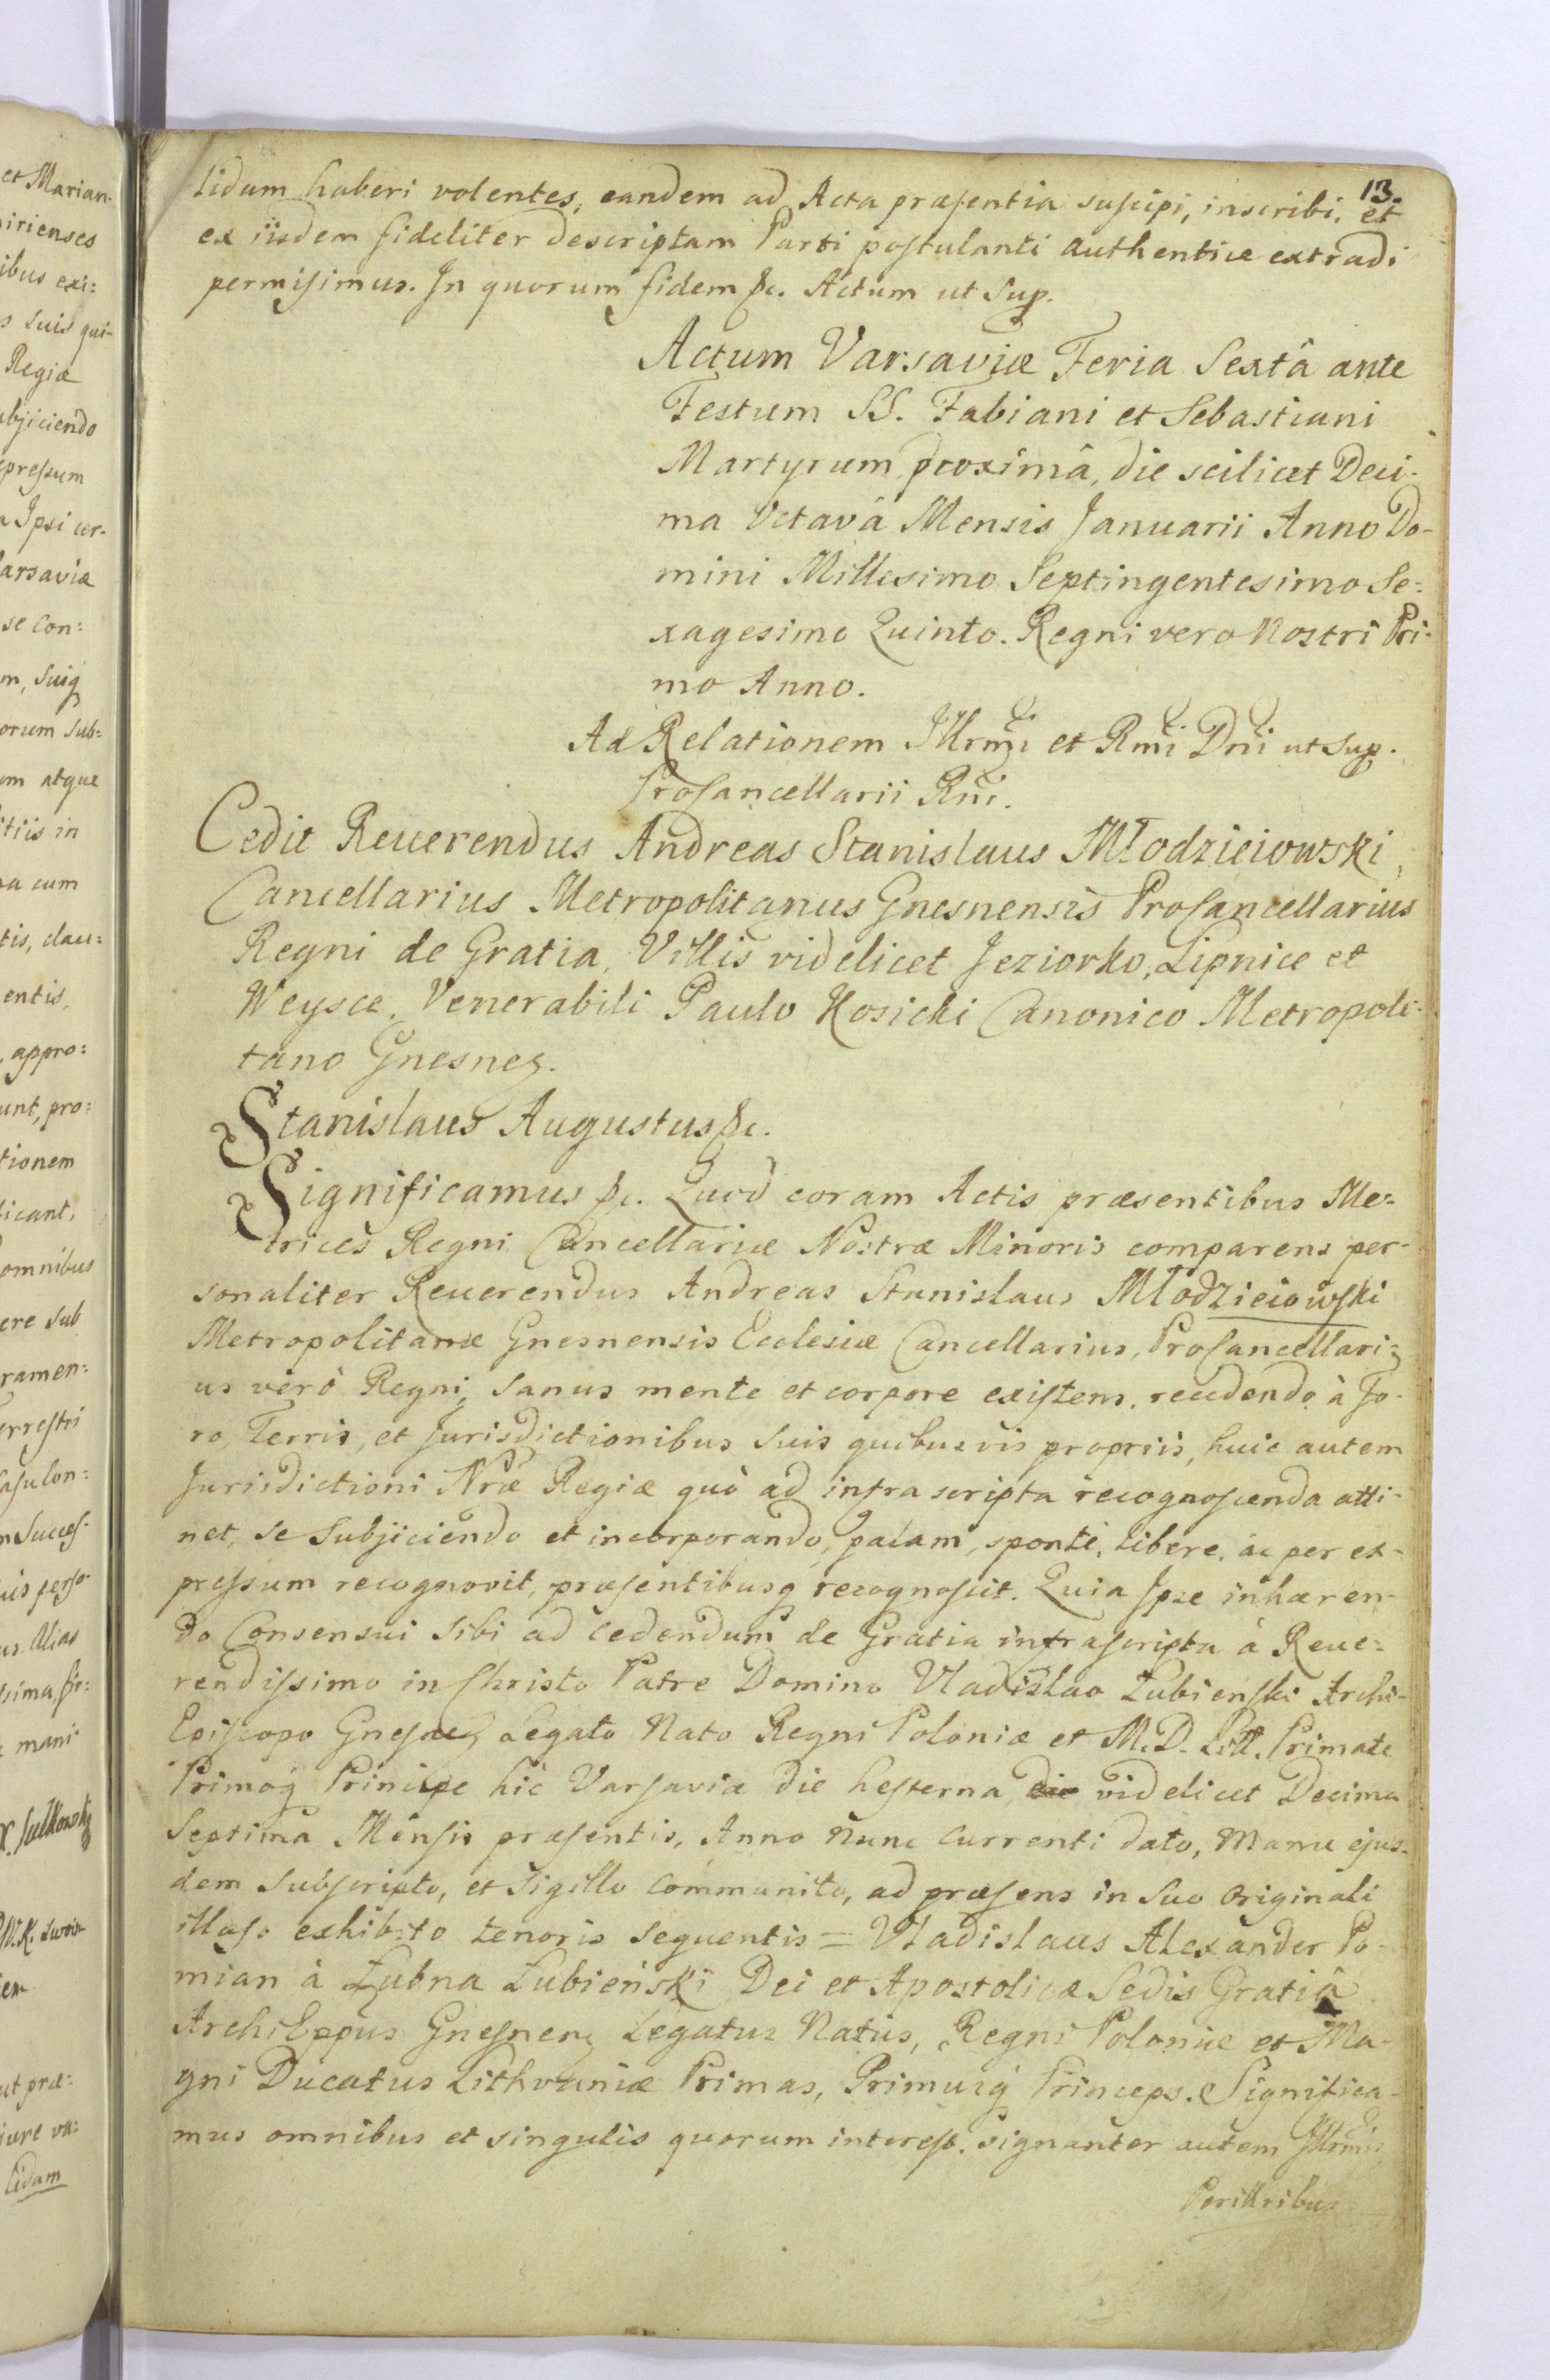 13.
lidam haberi volentes, eandem ad Acta præsentia suscipi, inscribi, et
ex iisdem fideliter descriptam Parti postulanti authentice extradi
permisimus. In quorum fidem &c. Actum ut Sup.
Actum Varsaviæ Feria Sextâ ante
Festum SS. Fabiani et Sebastiani
Martyrum proximâ, die scilicet Deci-
ma Octavâ Mensis Januarii Anno Do-
mini Millesimo Septingentesimo Se:
xagesimo Quinto. Regni vero Nostri Pri-
mo Anno.
Ad Relationem Illrmi et Rmi Dni ut Sup.
ProCancellarii Rni.
Cedit Reuerendus Andreas Stanislaus Młodzieiowski,
Cancellarius Metropolitanus Gnesnensis ProCancellarius
Regni de Gratia, Villis videlicet Jeziorko, Lipnice et
Weysce, Venerabili Paulo Kosicki Canonico Metropoli-
tano Gnesnen.
Stanislaus Augustus &c.
Significamus &c. Quod coram Actis præsentibus Me-
trices Regni Cancellariæ Nostræ Minoris comparens per-
sonaliter Reuerendus Andreas Stanislaus Młodzieiowski
Metropolitanæ Gnesnensis Ecclesiæ Cancellarius, ProCancellari-
us verò Regni, sanus mente et corpore existens, recedendo à Fo-
ro, Terris, et Jurisdictionibus suis quibusvis propriis, huic autem
Jurisdictioni Nræ Regiæ quò ad infra scripta recognoscenda atti-
net, se subjiciendo et incorporando, palam, sponte, libere, ac per ex-
pressum recognovit, præsentibusq recognoscit. Quia Ipse inhæren-
do Consensui sibi ad cedendum de Gratia infrascripta à Reue-
rendissimo in Christo Patre Domino Vladislao Łubienski Archi-
Episcopo Gnesnen Legato Nato Regni Poloniæ et M. D. Litt. Primate
Primoq Principe hic Varsaviæ die hesterna, die videlicet Decima
Septima Mensis præsentis, Anno nunc currenti dato, Manu ejus-
dem subscripto, et Sigillo communito, ad præsens in suo Originali
illæso exhibito tenoris sequentis = Vladislaus Alexander Po-
mian à Łubna Łubieński Dei et Apostolicæ Sedis Gratiâ
ArchiEppus Gnesnen Legatus Natus, Regni Poloniæ et Ma-
gni Ducatus Lithvaniæ Primas, Primusq Princeps. Significa-
mus omnibus et singulis quorum interest, signanter autem Illrmis
Perillribus
et Marian-
irienses
ibus exi:
s suis qui-
Regiæ
ubjiciendo
xpressum
a Ipsi cer-
arsaviæ
se con:
m, Suiq
orum sub:
om atque
itiis in
a cum
tis, clau:
entis,
, appro:
unt, pro:
tionem
icant,
omnibus
ere sub
ramen:
errestri
asulon:
n Succes-
us. Alias
mani
ut præ:
iure va:
lidam